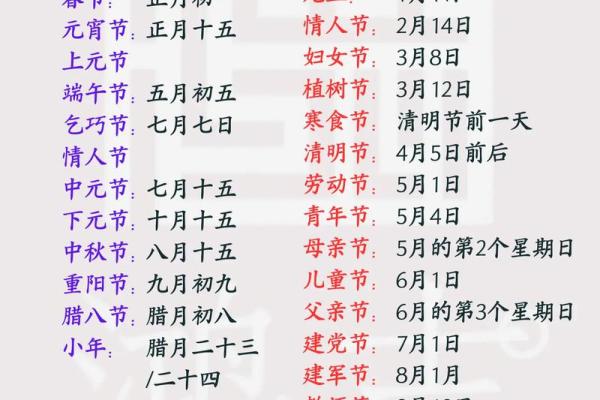 元宵节：正月十五
上元节
端午节：五月初五
乞巧节：七月七日
情人节
中元节：七月十五
下元节：十月十五
中秋节：八月十五
重阳节：九月初九
腊八节：腊月初八
小年：腊月二十三
/二十四
情人节：2月14日
妇女节：3月8日
植树节：3月12日
寒食节：清明节前一天
清明节：4月5日前后
劳动节：5月1日
青年节：5月4日
母亲节：5月的第2个星期日
儿童节：6月1日
父亲节：6月的第3个星期日
建党节：7月1日
建军节：8月1月